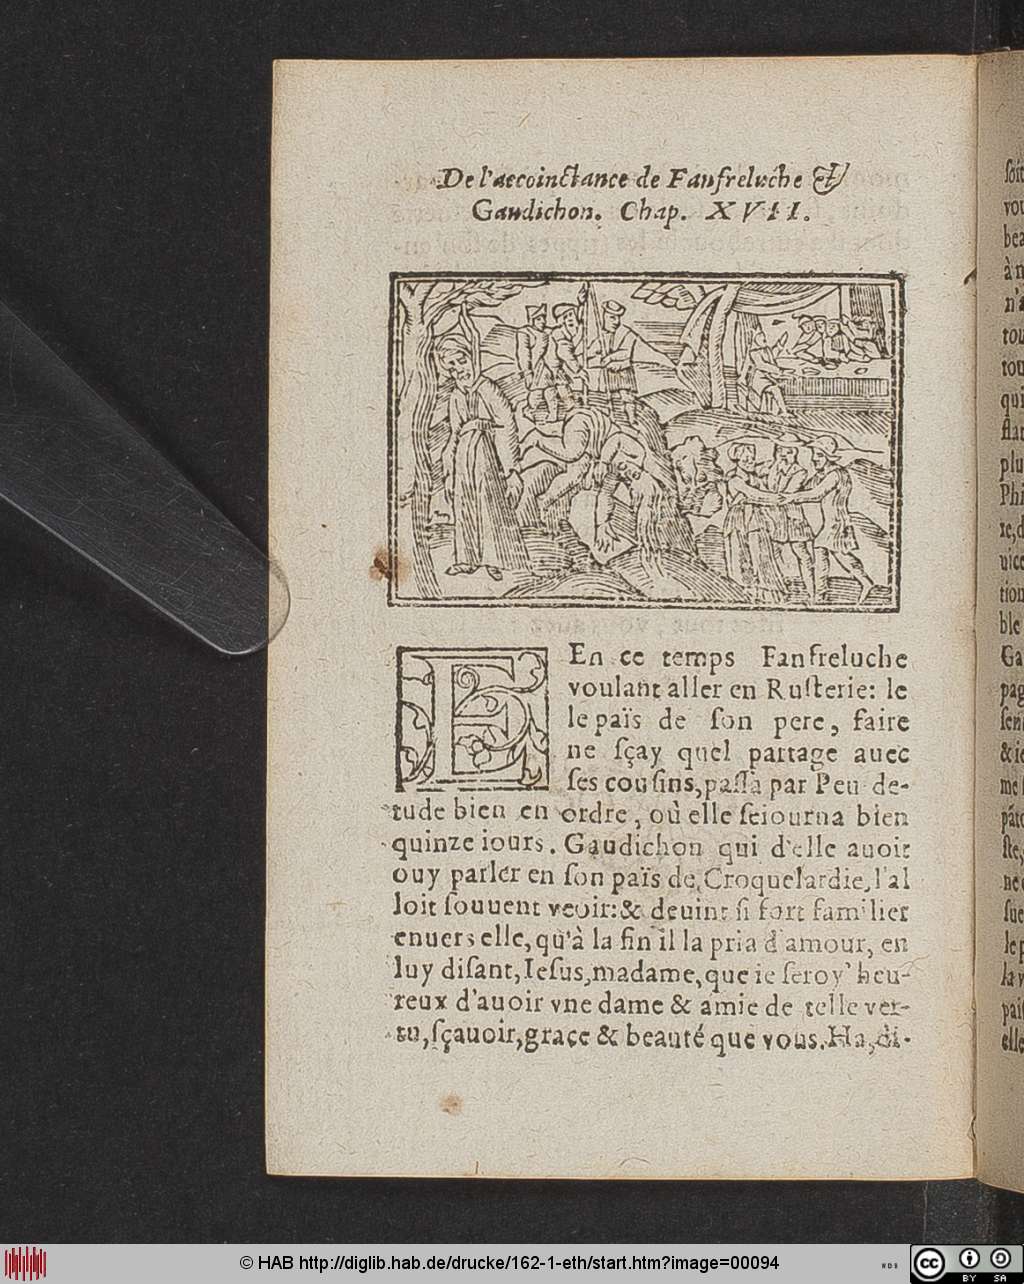 De l'accoinctance de Fanfreluche &
Gaudichon. Chap. XVII.
En ce temps Fanfreluche
voulant aller en Ruſterie: le
le païs de ſon pere, faire
ne ſçay quel partage auec
ſes couſins, paſſa par Peu de-
tude bien en ordre, où elle ſeiourna bien
quinze iours. Gaudichon qui d'elle auoit
ouy parler en ſon païs de Croquelardie, l'al
loit ſouuent veoir: & deuint ſi fort familier
enuers elle, qu'à la fin il la pria d'amour, en
luy diſant, Ieſus, madame, que ie ſeroy' heu-
reux d'auoir vne dame & amie de telle ver-
tu, ſçauoir, grace & beauté que vous. Ha, di-
ſoit
vou
bea
à n
n'a
tou
tou
qui
plu
tion
ble
Ga
pag
& ie
me
ne
ſue
le p
la v
paiſ
elle
© HAB http://diglib.hab.de/drucke/162-1-eth/start.htm?image=00094
WDB
cc BY SA